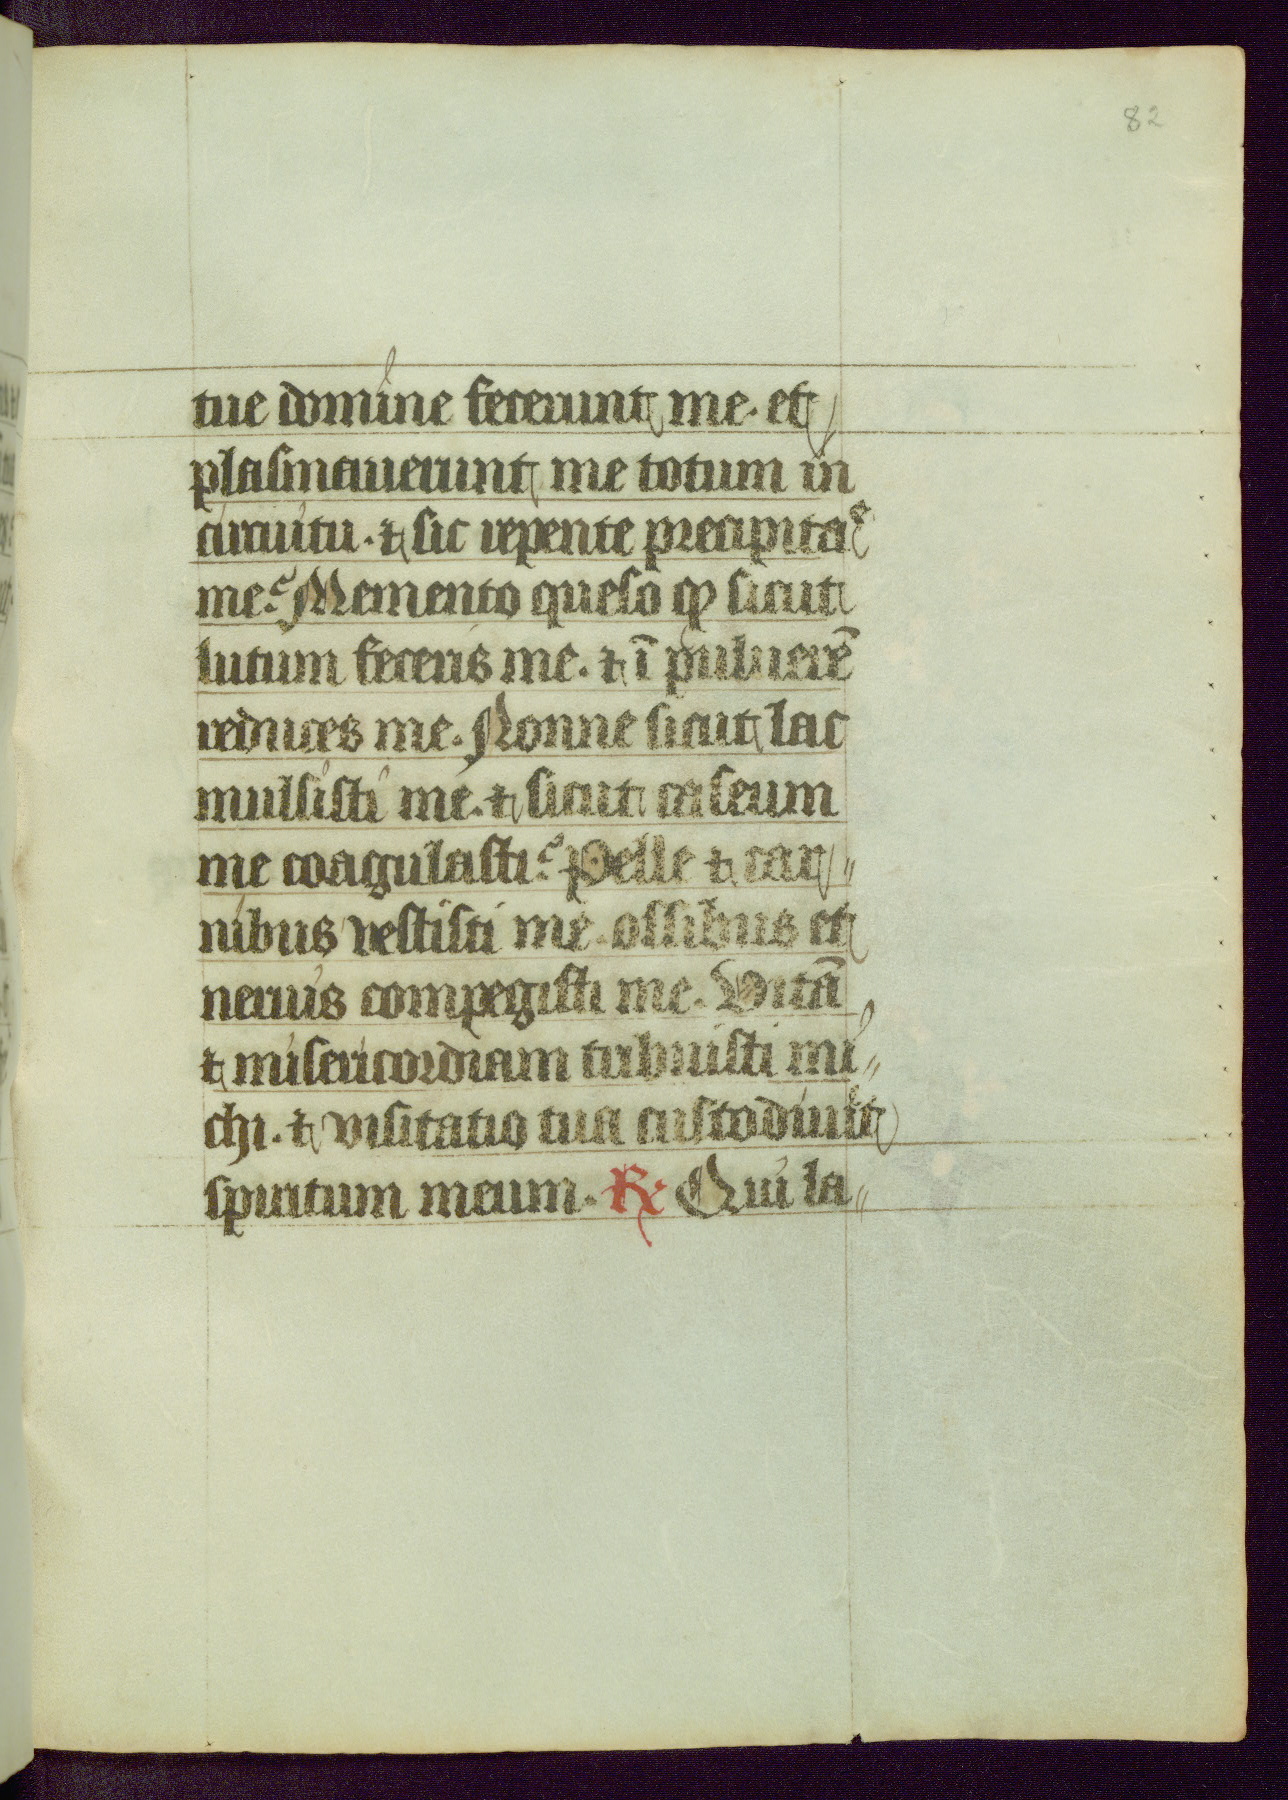 82
tue domine fecerunt me. et
plasmauerunt me totum in
circuitu. ⁊ sic repente precipitas
me? Memento queso ꝙ sicut
lutum feceris me. ⁊ ī puluerē
reduces me. Nonne sicut lac
mulsisti me. ⁊ sicut caseum
me coagulasti? Pelle ⁊ car〃
nibus vestisti me. ossibus et
neruis compegisti me. Vitā
⁊ misericordiam tribuisti mi〃
chi. ⁊ visitatio tua custodiuit
spiritum meum. ℞ Qui la〃